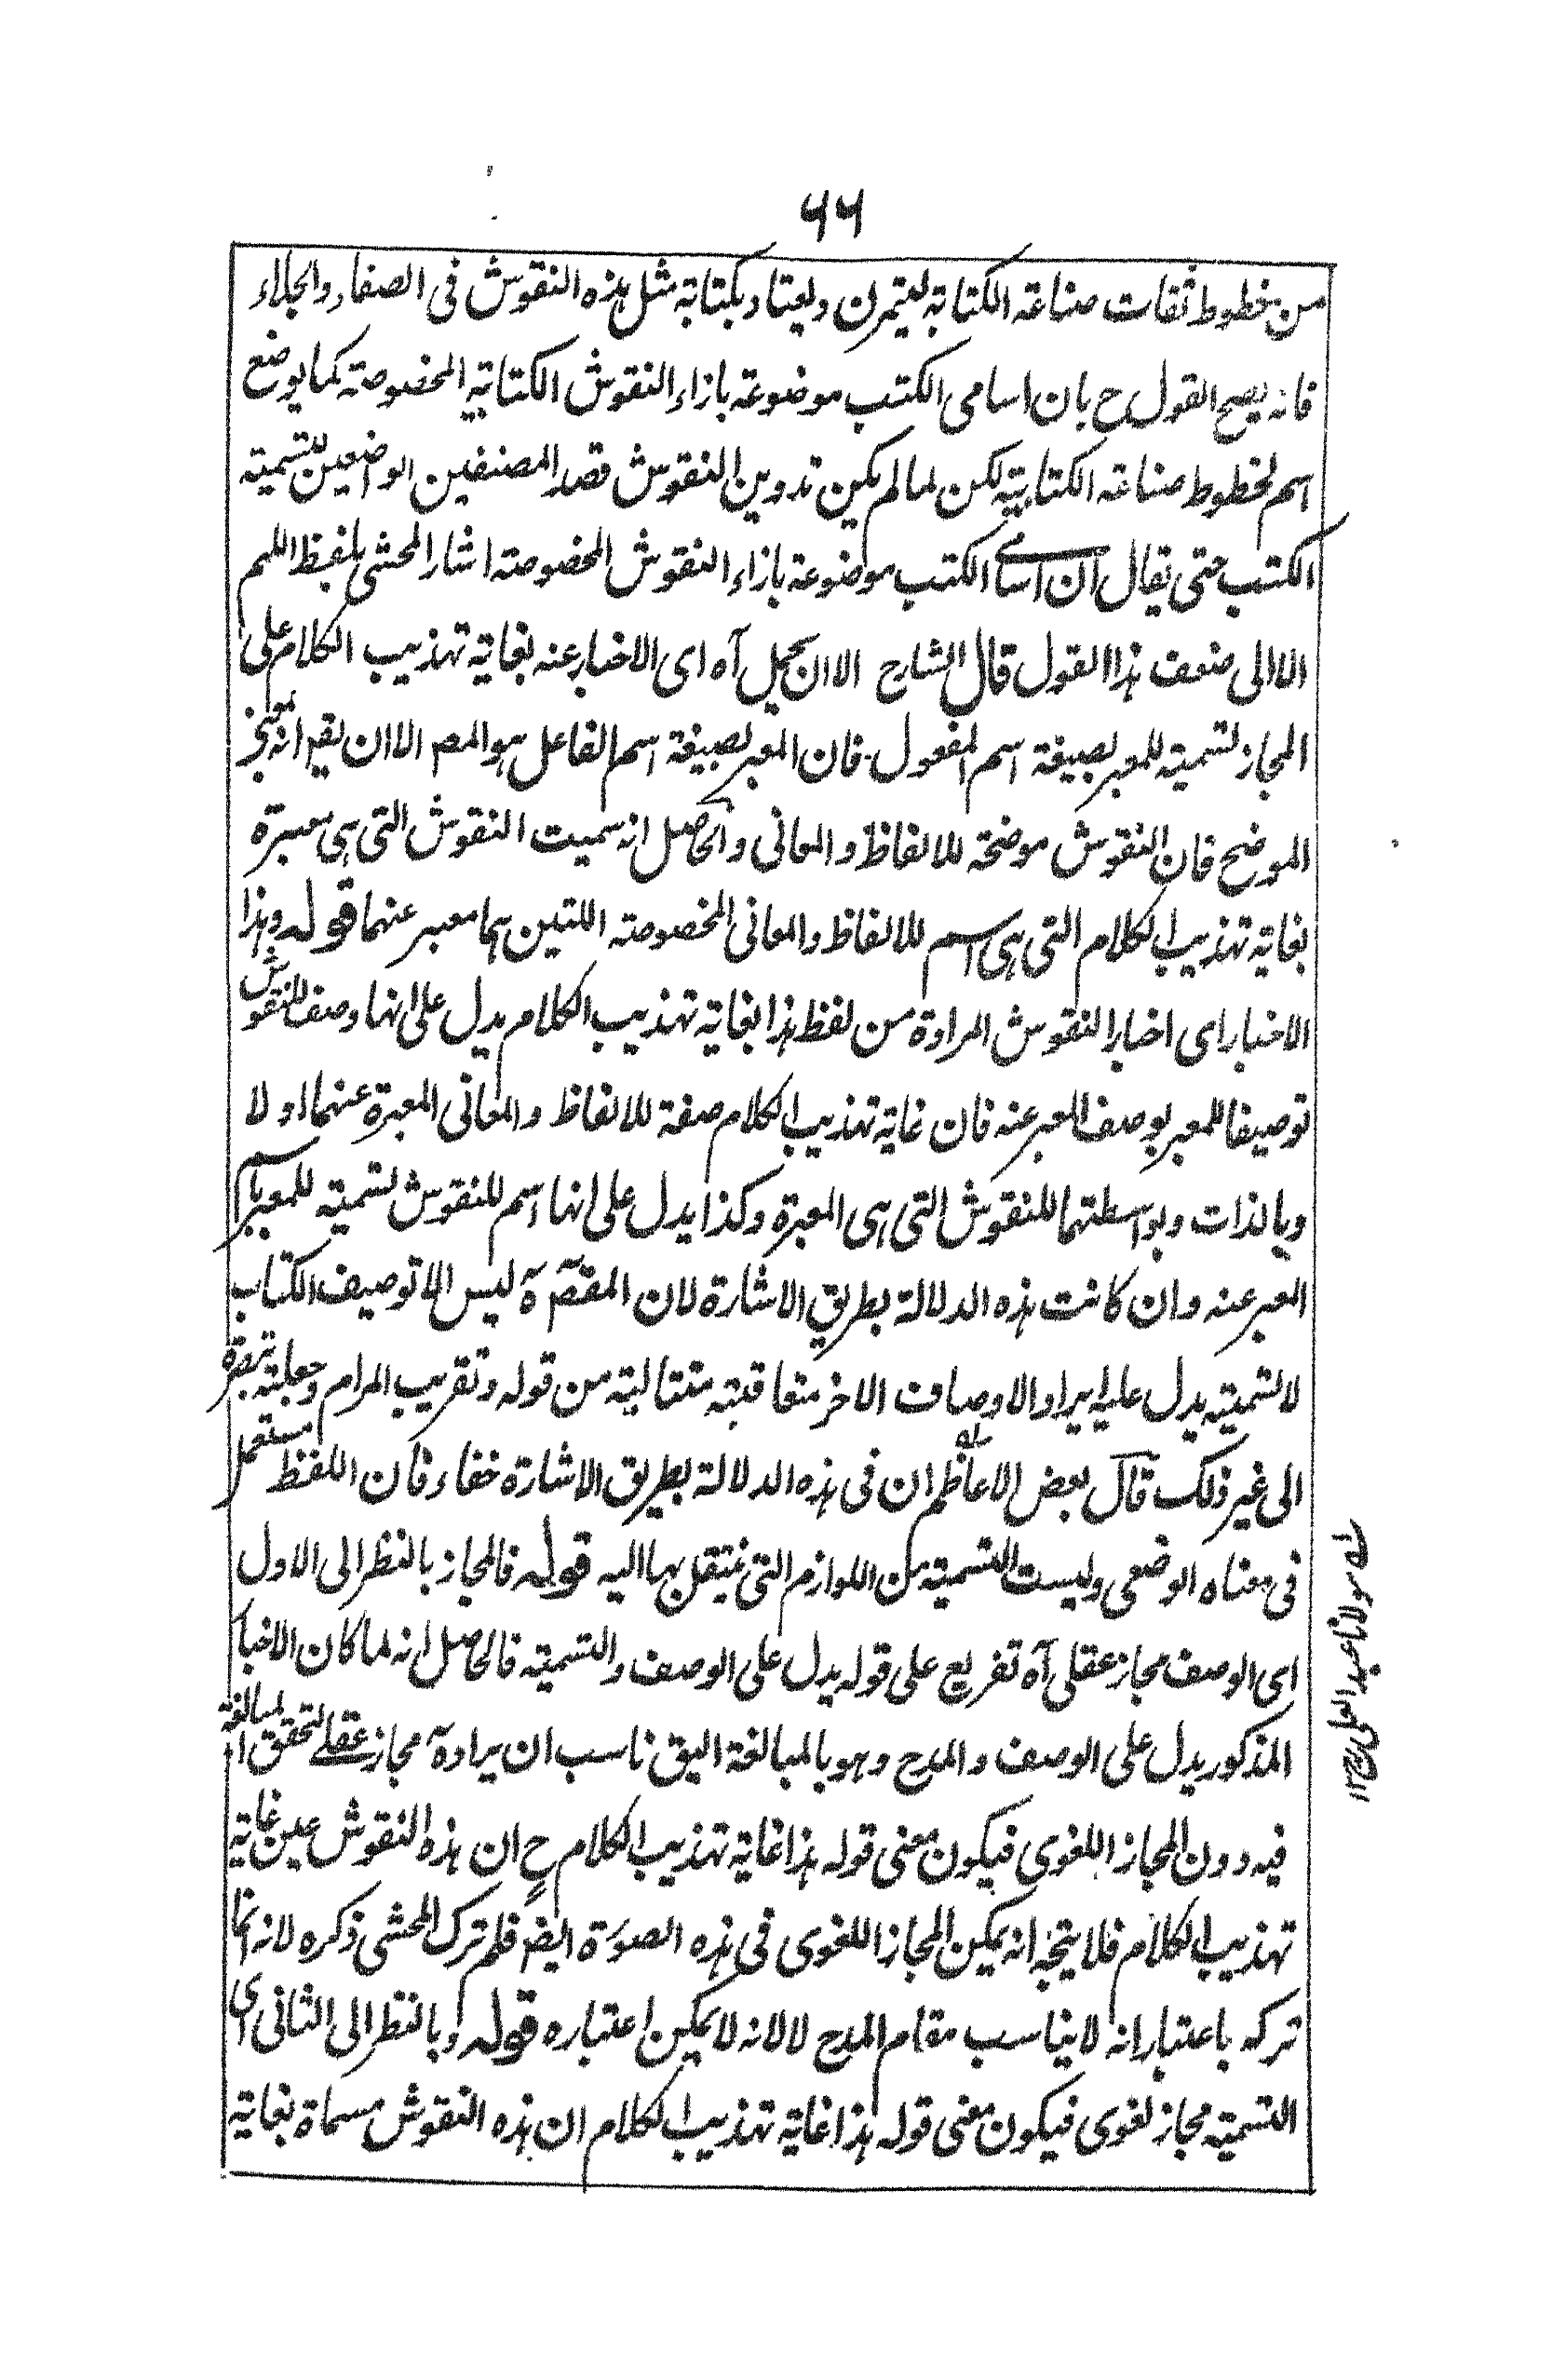 ٦٦
من خطوط ثقات صناعة الكتابة ليتمرن ويعتاد بكتابة مثل هذه النقوش فى الصفاء والجلاء
فانه يصح القول ح بان اسامى الكتب موضوعة بازاء النقوش الكتابية المخصوصة كما يوضع
اسم لخطوط صناعة الكتابية لكن لما لم يكن تدوين النقوش قصد المصنفين الواضعين لتسمية
الكتب حتى يقال ان اسامى الكتب موضوعة بازاء النقوش المخصوصة اشار المحشى بلفظ اللهم
الا الى ضعف هذا القول قال الشارح الا ان يحمل آه اى الاخبار عنه بغاية تهذيب الكلام على
المجاز لتسمية للمعبر بصيغة اسم المفعول فان المعبر بصيغة اسم الفاعل هو المص الا ان يقم انه معنى
الموضح فان النقوش موضحة للالفاظ والمعانى والحاصل انه سميت النقوش التى هى معبرة
بغاية تهذيب الكلام التى هى اسم للالفاظ والمعانى المخصوصة اللتين هما معبر عنهما قوله وهذا
الاخبار اى اخبار النقوش المرادة من لفظ هذا بغاية تهذيب الكلام يدل على انها وصف للنقوش
توصيفا للمعبر بوصف المعبر عنه فان غاية تهذيب الكلام صفة للالفاظ والمعانى المعبرة عنهما اولا
وبالذات وبواسطتهما للنقوش التى هى المعبرة وكذا يدل على انها اسم للنقوش لتسمية للمعبر باسم
المعبر عنه وان كانت هذه الدلالة بطريق الاشارة لان المقصم آه ليس الا توصيف الكتاب
لا لتسمية يدل عليه ايراد الاوصاف الاخر متعاقبة متتالية من قوله وتقريب المرام وجعلته تبصرة
الى غير ذلك قال بعض الاعاظم له ان فى هذه الدلالة بطريق الاشارة خفاء فان اللفظ مستعمل
فى معناه الوضعى وليست التسمية من اللوازم التى ينتقل بها اليه قوله فالمجاز بالنظر الى الاول
اى الوصف مجاز عقلى آه تفريع على قوله يدل على الوصف والتسمية فالحاصل انه لما كان الاخبار
المذكور يدل على الوصف والمدح وهو بالمبالغة اليق ناسب ان يراد آه مجاز عقلى لتحقق المبالغة
فيه دون المجاز اللغوى فيكون معنى قوله هذا غاية تهذيب الكلام ح ان هذه النقوش عين غاية
تهذيب الكلام فلا يتجه انه يمكن المجاز اللغوى فى هذه الصورة ايضم فلم ترك المحشى ذكره لانه انما
تركه باعتبار انه لا يناسب مقام المدح لا لانه لا يمكن اعتباره قوله وبالنظر الى الثانى اى
التسمية مجاز لغوى فيكون معنى قوله هذا غاية تهذيب الكلام ان هذه النقوش مسماة بغاية
له مولانا عبد العلى رح ١٢